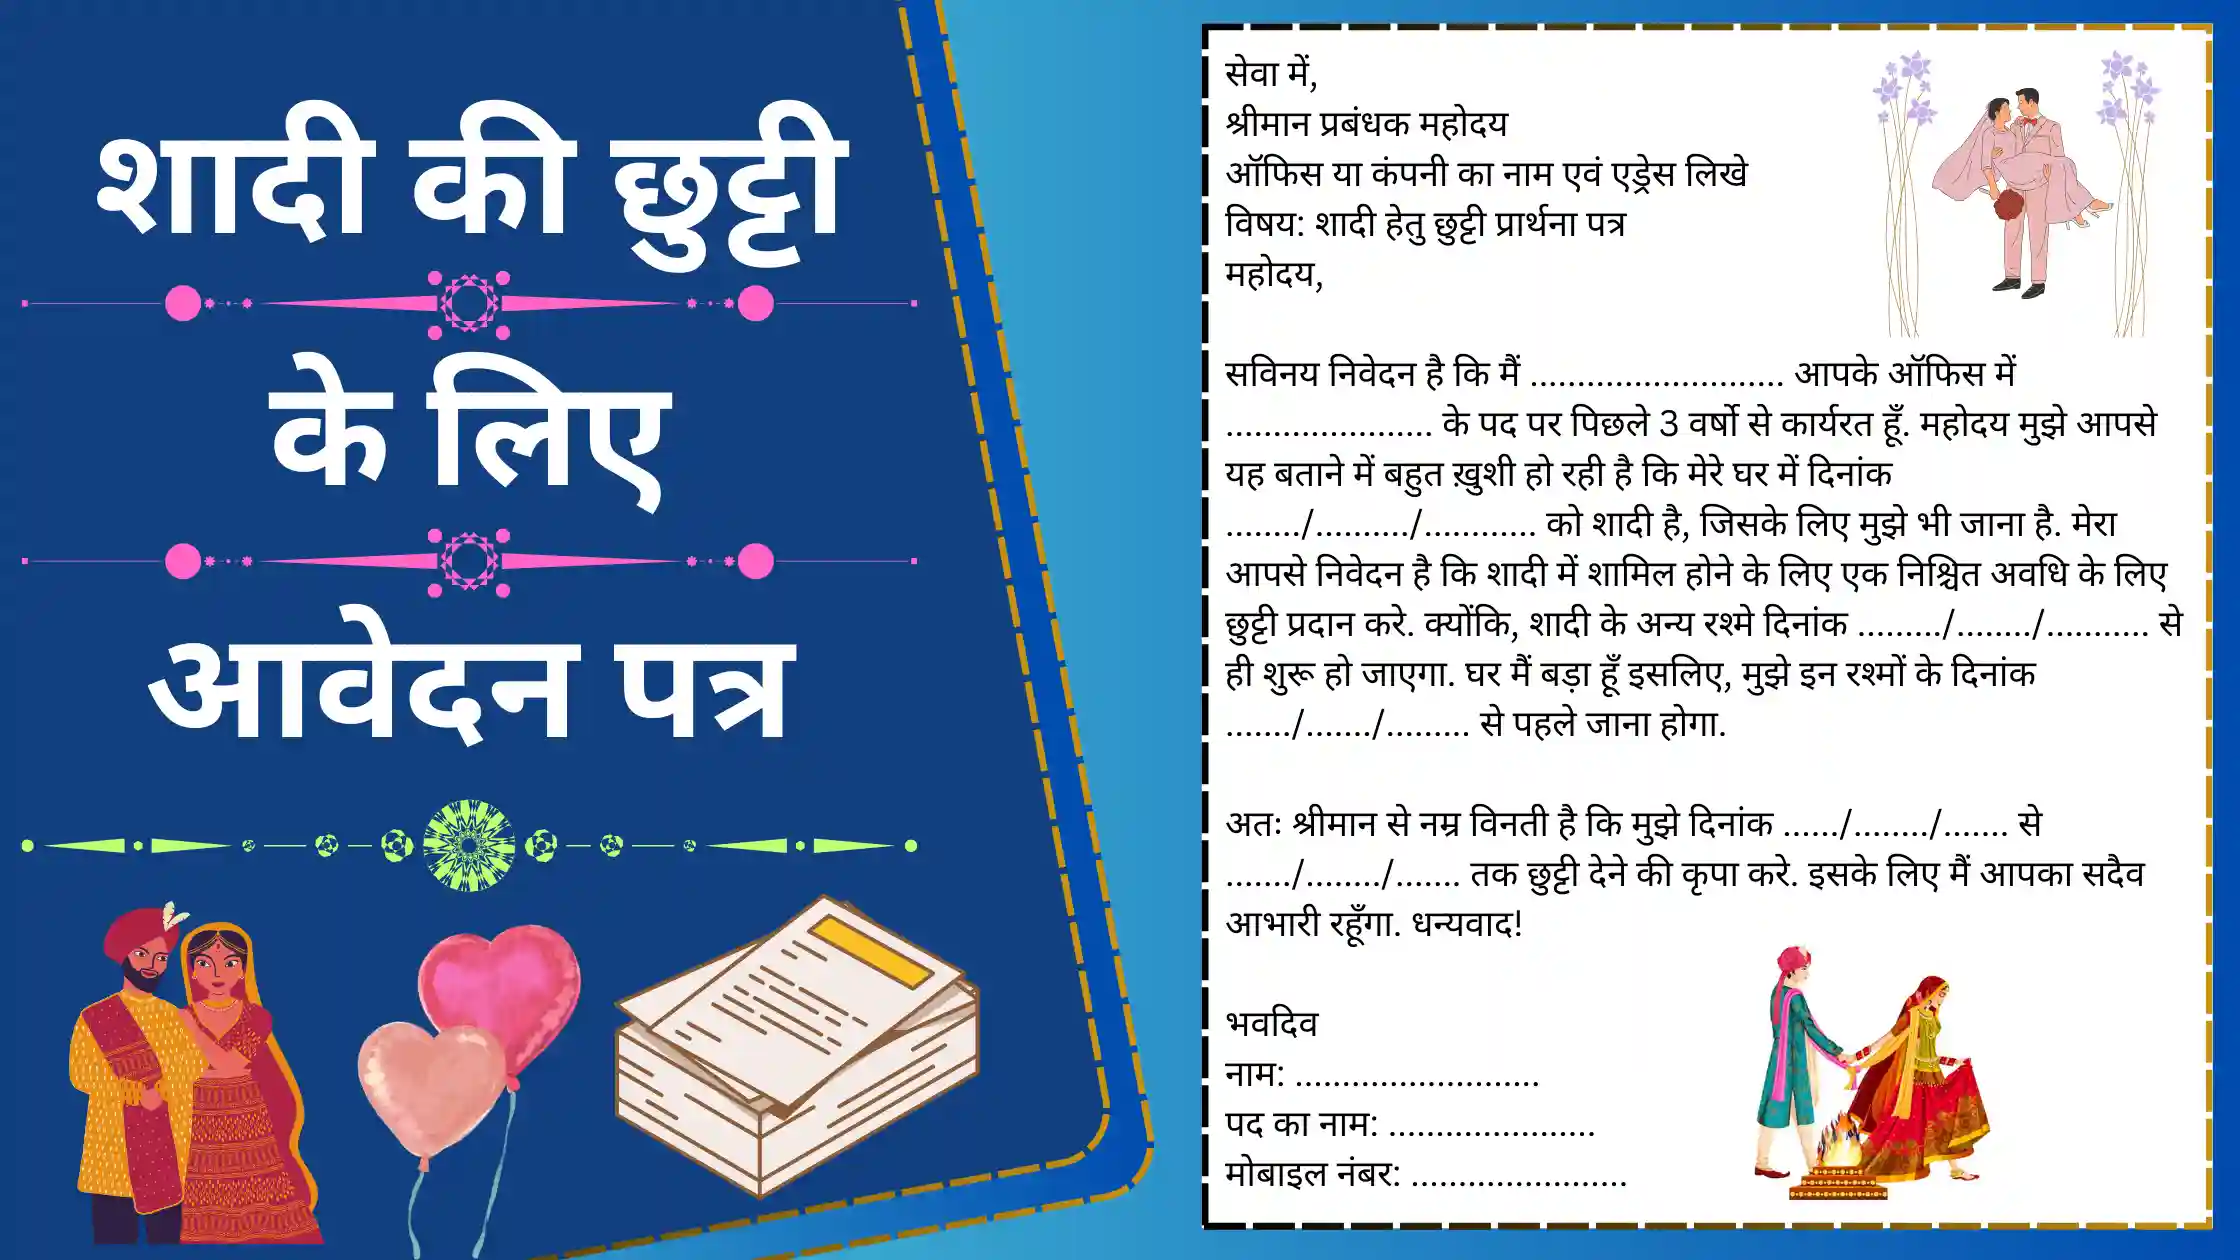 शादी की छुट्टी
के लिए
आवेदन पत्र
सेवा में,
श्रीमान प्रबंधक महोदय
ऑफिस या कंपनी का नाम एवं एड्रेस लिखे
विषय: शादी हेतु छुट्टी प्रार्थना पत्र
महोदय,
सविनय निवेदन है कि मैं ........................... आपके ऑफिस में
...................... के पद पर पिछले 3 वर्षो से कार्यरत हूँ. महोदय मुझे आपसे
यह बताने में बहुत ख़ुशी हो रही है कि मेरे घर में दिनांक
......../........../............ को शादी है, जिसके लिए मुझे भी जाना है. मेरा
आपसे निवेदन है कि शादी में शामिल होने के लिए एक निश्चित अवधि के लिए
छुट्टी प्रदान करे. क्योंकि, शादी के अन्य रश्मे दिनांक ........./......../........... से
ही शुरू हो जाएगा. घर मैं बड़ा हूँ इसलिए, मुझे इन रश्मों के दिनांक
......./......./......... से पहले जाना होगा.
अतः श्रीमान से नम्र विनती है कि मुझे दिनांक ....../......../....... से
......./......../....... तक छुट्टी देने की कृपा करे. इसके लिए मैं आपका सदैव
आभारी रहूँगा. धन्यवाद!
भवदिव
नाम: ..........................
पद का नाम: ......................
मोबाइल नंबर: .......................